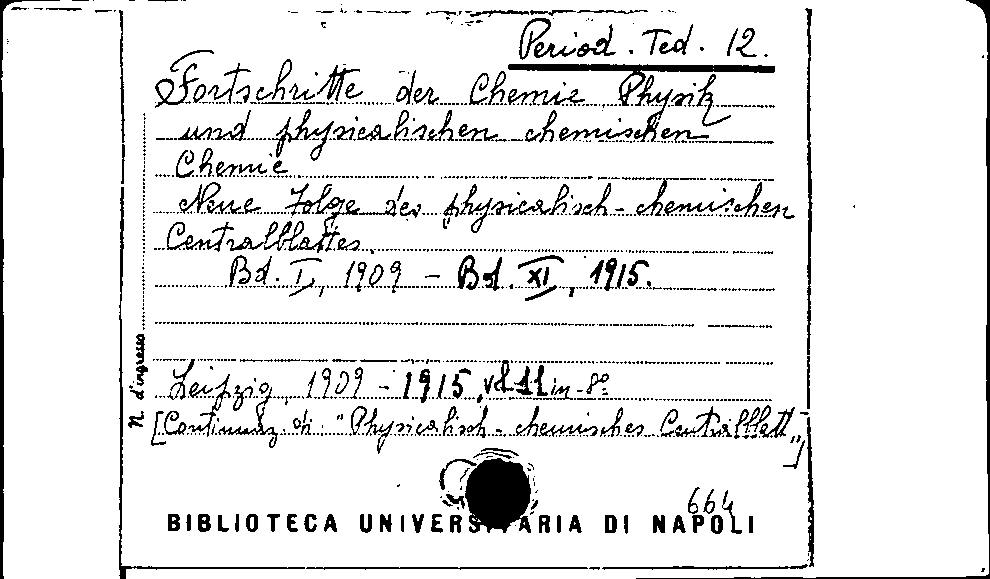 Period. Ted. 12.
Fortschritte der Chemie Physik
und physicalischen chemischen
Chemie
Neue Folge des physicalisch-chemischen
Centralblattes.
Bd. I, 1909 - Bd. XI, 1915.
Leipzig, 1909 - 1915, vol. 11 in-8º
[Continuaz. di: "Physicalisch-chemisches Centralblatt"]
N. d'ingresso
664
BIBLIOTECA UNIVERSITARIA DI NAPOLI